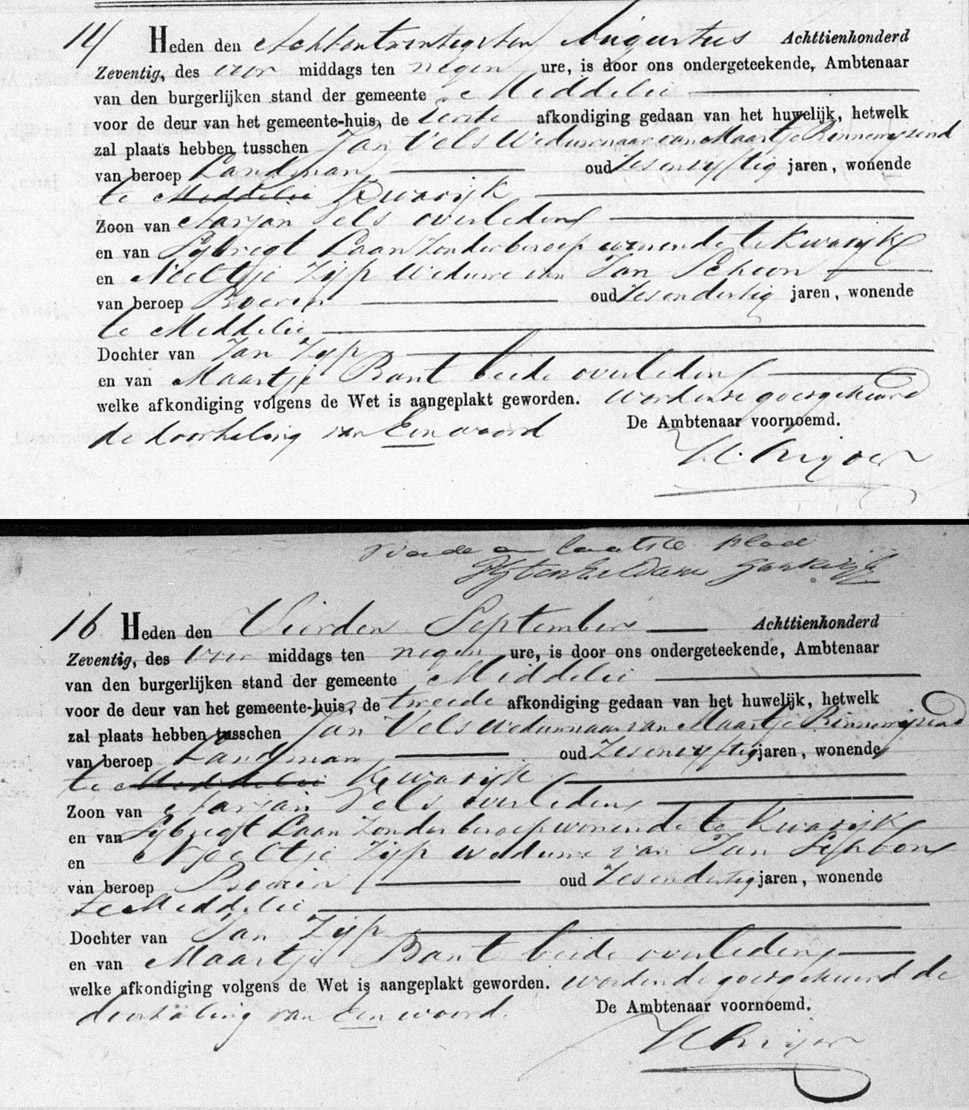 14 Heden den Achtentwintigsten Augustus Achttienhonderd
Zeventig, des voor middags ten negen ure, is door ons ondergeteekende, Ambtenaar
van den burgerlijken stand der gemeente Middelie
voor de deur van het gemeente-huis, de Eerste afkondiging gedaan van het huwelijk, hetwelk
zal plaats hebben tusschen Jan Pels Weduwnaar van Maartje Binnewijzend
van beroep Landman oud Zesenvyftig jaren, wonende
te Middelie Kwadijk
Zoon van Aarjan Pels overleden
en van Sijbregt Laan Zonder beroep wonende te Kwadijk
en Neeltje Zijp Weduwe van Jan Schoon
van beroep Boerin oud Zesendertig jaren, wonende
te Middelie
Dochter van Jan Zijp
en van Maartje Bant beide overleden
welke afkondiging volgens de Wet is aangeplakt geworden. wordende goedgekeurd
de doorhaling van Een woord De Ambtenaar voornoemd.
vierde en laatste blad
16 Heden den Vierden September Achttienhonderd
Zeventig, des voor middags ten negen ure, is door ons ondergeteekende, Ambtenaar
van den burgerlijken stand der gemeente Middelie
voor de deur van het gemeente-huis, de tweede afkondiging gedaan van het huwelijk, hetwelk
zal plaats hebben tusschen Jan Pels Weduwnaar van Maartje Binnewijzend
van beroep Landman oud Zesenvyftig jaren, wonende
te Middelie Kwadijk
Zoon van Aarjan Pels overleden
en van Sijbregt Laan Zonder beroep wonende te Kwadijk
en Neeltje Zijp weduwe van Jan Schoon
van beroep Boerin oud Zesendertig jaren, wonende
te Middelie
Dochter van Jan Zijp
en van Maartje Bant beide overleden
welke afkondiging volgens de Wet is aangeplakt geworden. wordende goedgekeurd de
doorhaling van Een woord. De Ambtenaar voornoemd.